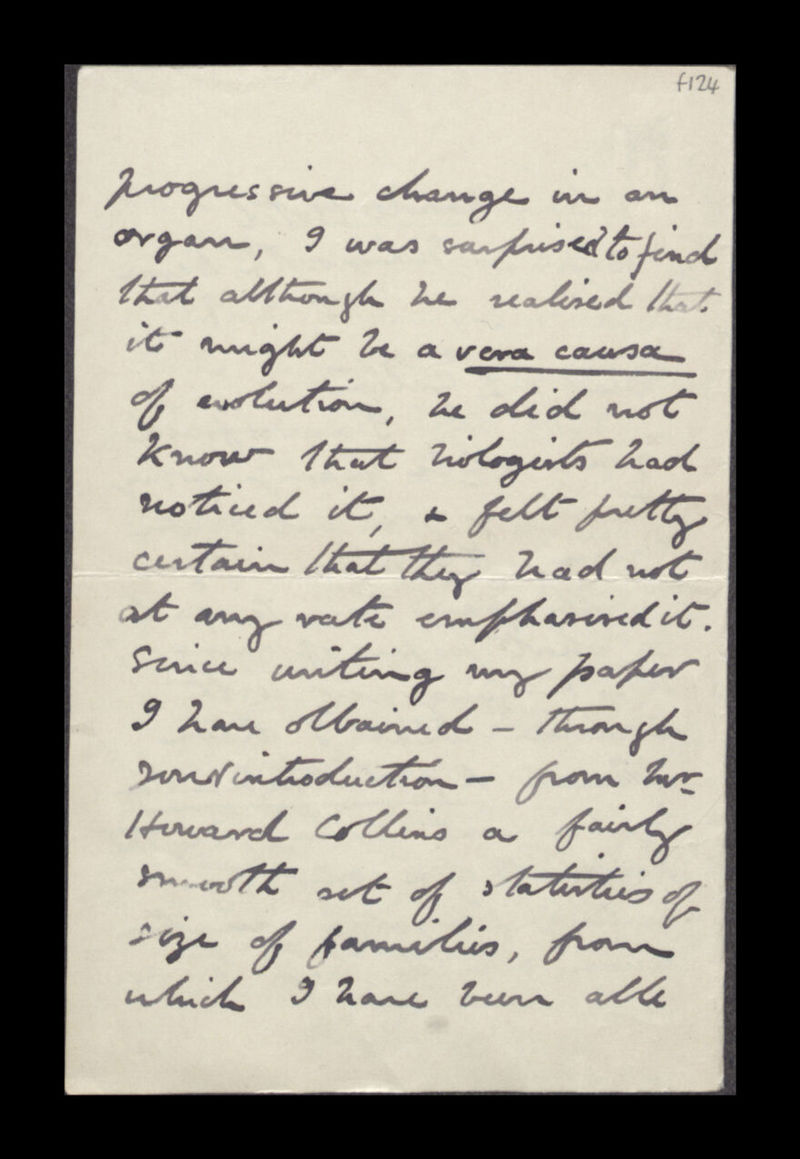 f124
progressive change in an
organ, I was surprised to find
that although he realised that
it might be a vera causa
of evolution, he did not
know that biologists had
noticed it, & felt pretty
certain that they had not
at any rate emphasised it.
Since writing my paper
I have obtained – through
your introduction – from Mr
Howard Collins a fairly
smooth set of statistics of
size of families, from
which I have been able